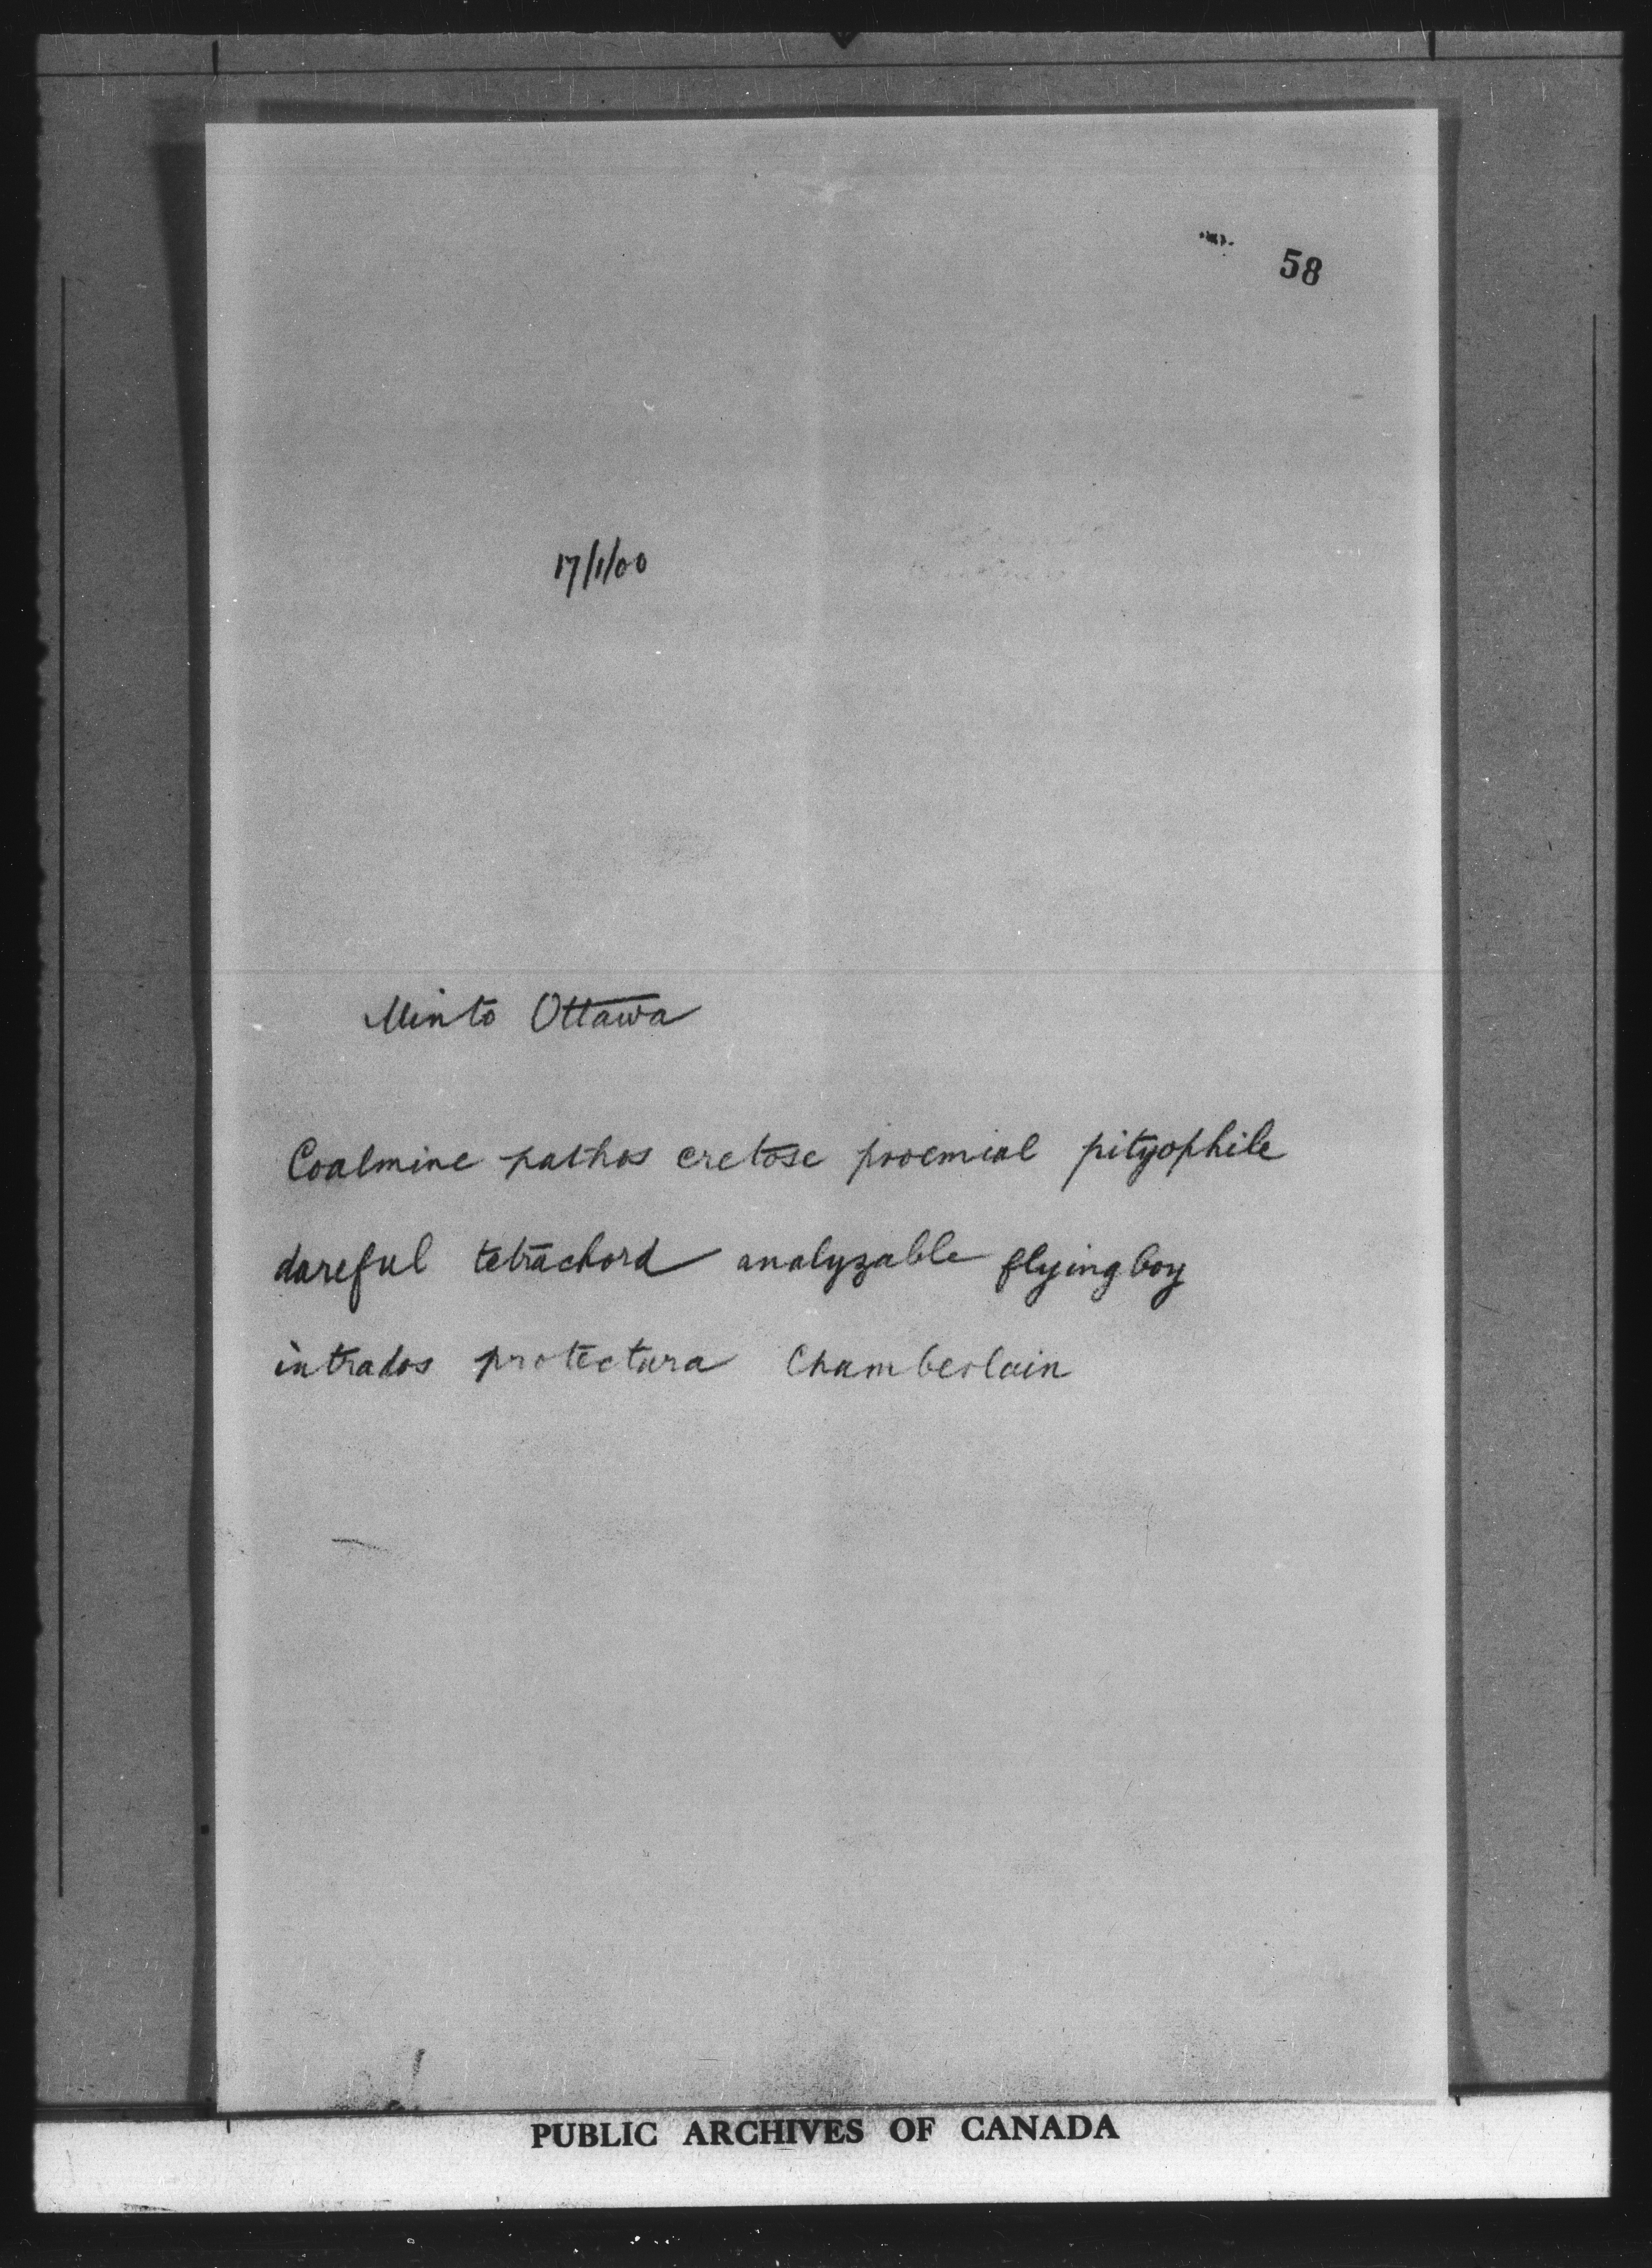 58
17/1/00
Minto Ottawa
Coalmine pathos cretose proemial pityophile
dareful tetrachord analyzable flyingboy
intrados protectura Chamberlain
PUBLIC ARCHIVES OF CANADA